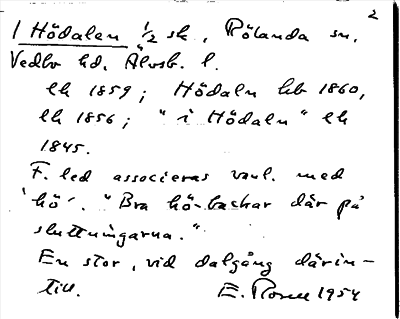 2
1 Hödalen 1/2 sk, Rölanda sn.
Vedbo hd. Älvsb. l.
lk 1859; Hödaln hb 1860,
lk 1856; "i Hödaln" lk
1845.
F. led associeras vanl. med
'hö'. "Bra hö-backar där på
sluttningarna."
En stor, vid dalgång därin-
till. E. Rosell 1954